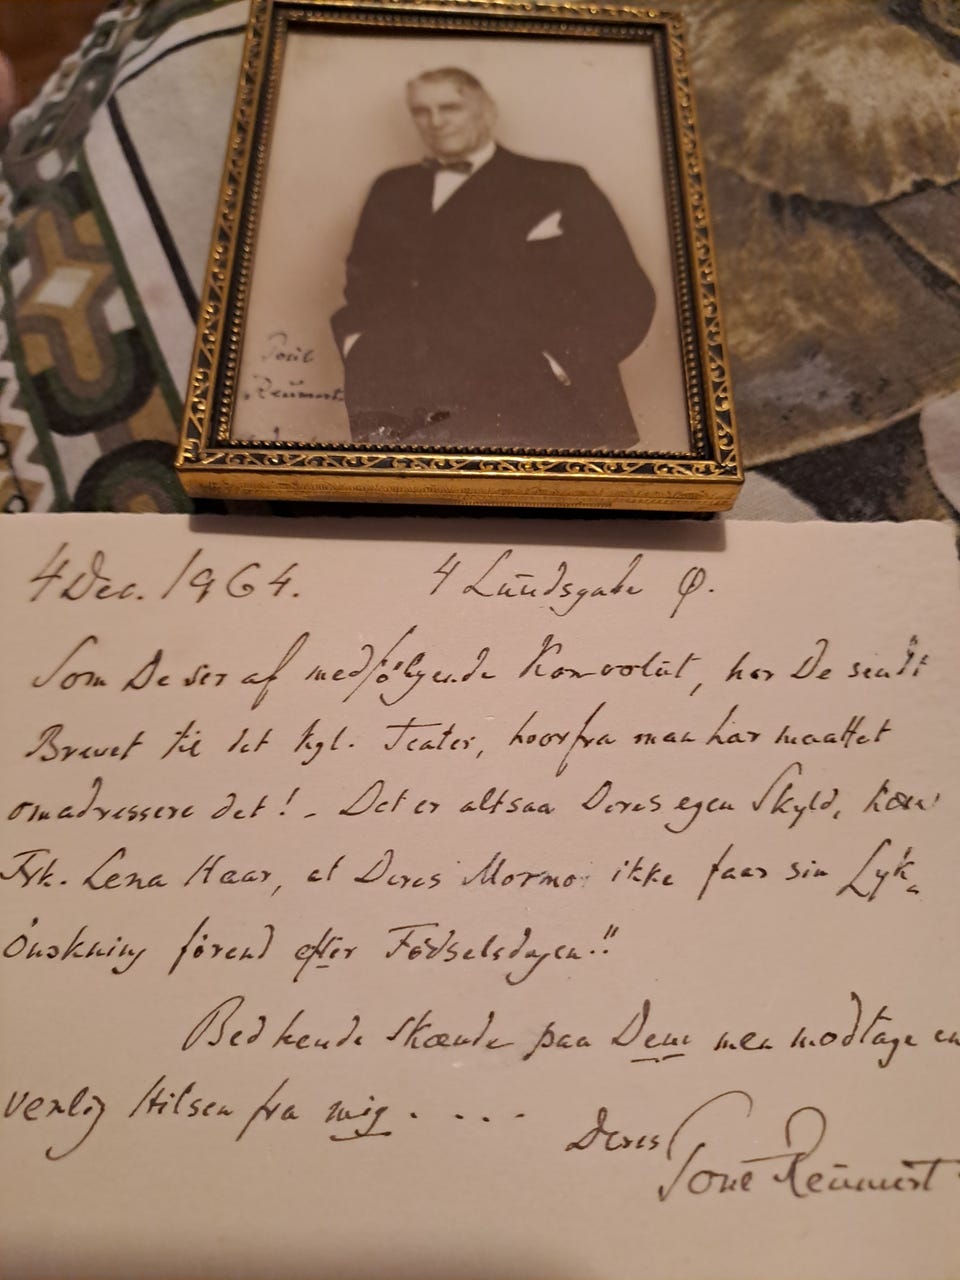 Poul
Reumert
4 Dec. 1964. 4 Lundsgade Ø.
Som De ser af medfølgende Konvolut, har De sendt
Brevet til det kgl. Teater, hvorfra man har maattet
omadressere det! - Det er altsaa Deres egen Skyld, kære
Frk. Lena Haar, at Deres Mormor ikke faar sin Lyk-
ønskning førend efter Fødselsdagen!!
Bed hende skænde paa Dem men modtage en
venlig Hilsen fra mig . . . .
Deres Poul Reumert